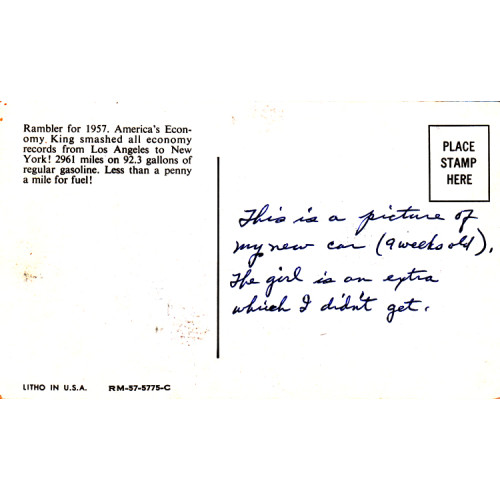 Rambler for 1957. America's Econ-
omy King smashed all economy
records from Los Angeles to New
York! 2961 miles on 92.3 gallons of
regular gasoline. Less than a penny
a mile for fuel!
PLACE
STAMP
HERE
This is a picture of
my new car (9 weeks old).
The girl is an extra
which I didn't get.
LITHO IN U.S.A. RM-57-5775-C